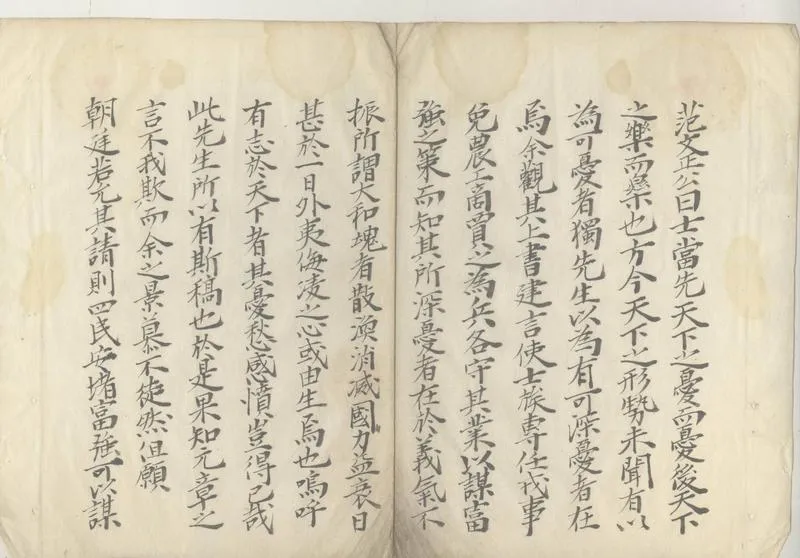 范文正公曰士當先天下之憂而憂後天下
之樂而樂也方今天下之形勢未聞有以
為可憂者獨先生以為有可深憂者在
焉余觀其上書建言使士族專任戎事
免農工商買之為兵各守其業以謀富
強之策而知其所深憂者在於義氣不
振所謂大和塊者散渙消滅國力益衰日
甚於一日外夷侮凌之心或由生焉也嗚呼
有志於天下者其憂愁感憤豈得已哉
此先生所以有斯稿也於是果知元章之
言不我欺而余之景慕不徒然但願
朝廷若允其請則四民安堵富強可以謀